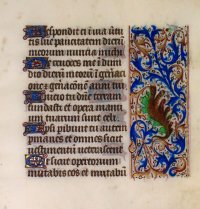 Respondit ei i via virtu
tis sue paucitatem dierū
meorum nuncia michi
Ne revoces me ī dimi
dio dierū meorū ī generati
one et generationē anni tui
Initio tu dn̄e terram
fundasti et opera manu
um tuarum sunt celi
Ipsi peribunt tu autem
permanes et omnes sicut
vestimentum veterascent
Et sicut opertorium
mutabis eos et mutabū